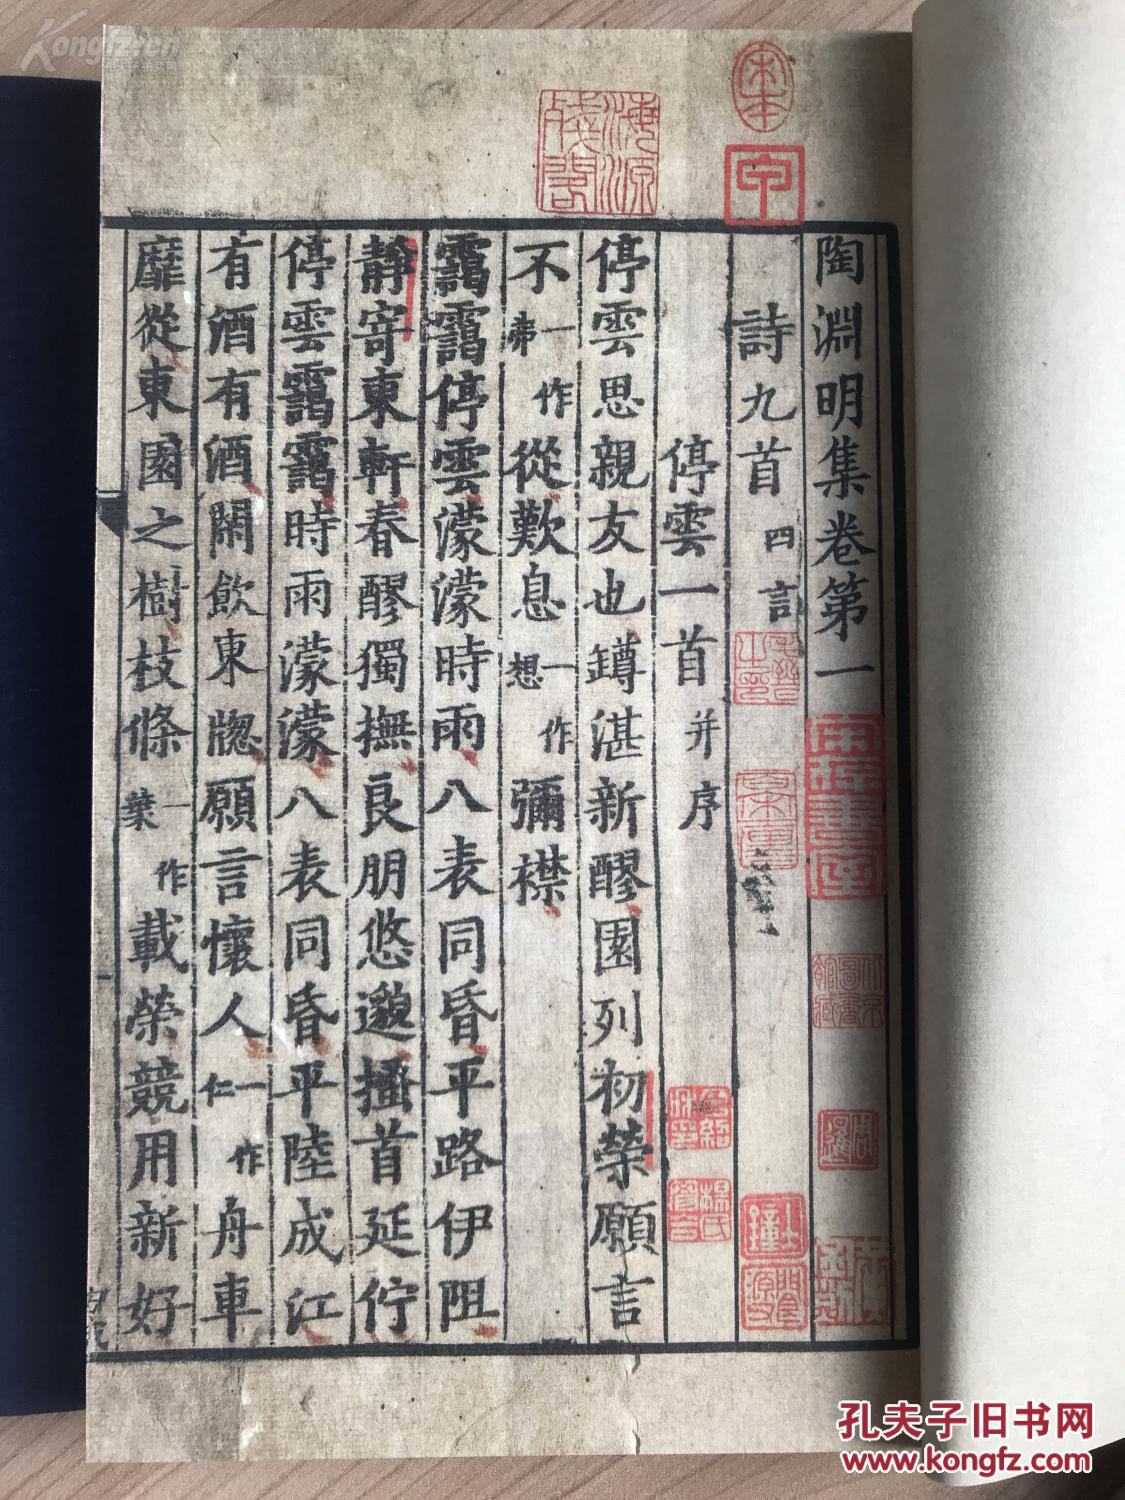 陶淵明集卷第一
詩九首四言
停雲一首并序
停雲思親友也罇湛新醪園列初榮願言
不一作弗從歎息一作想彌襟
靄靄停雲濛濛時雨八表同昏平路伊阻
靜寄東軒春醪獨撫良朋悠邈搔首延佇
停雲靄靄時雨濛濛八表同昏平陸成江
有酒有酒閑飲東牕願言懷人一作仁舟車
靡從東園之樹枝條一作葉載榮競用新好
宋本
海源殘閣
周暹
楊氏
孔夫子旧书网
www.kongfz.com
Kongfz.cn